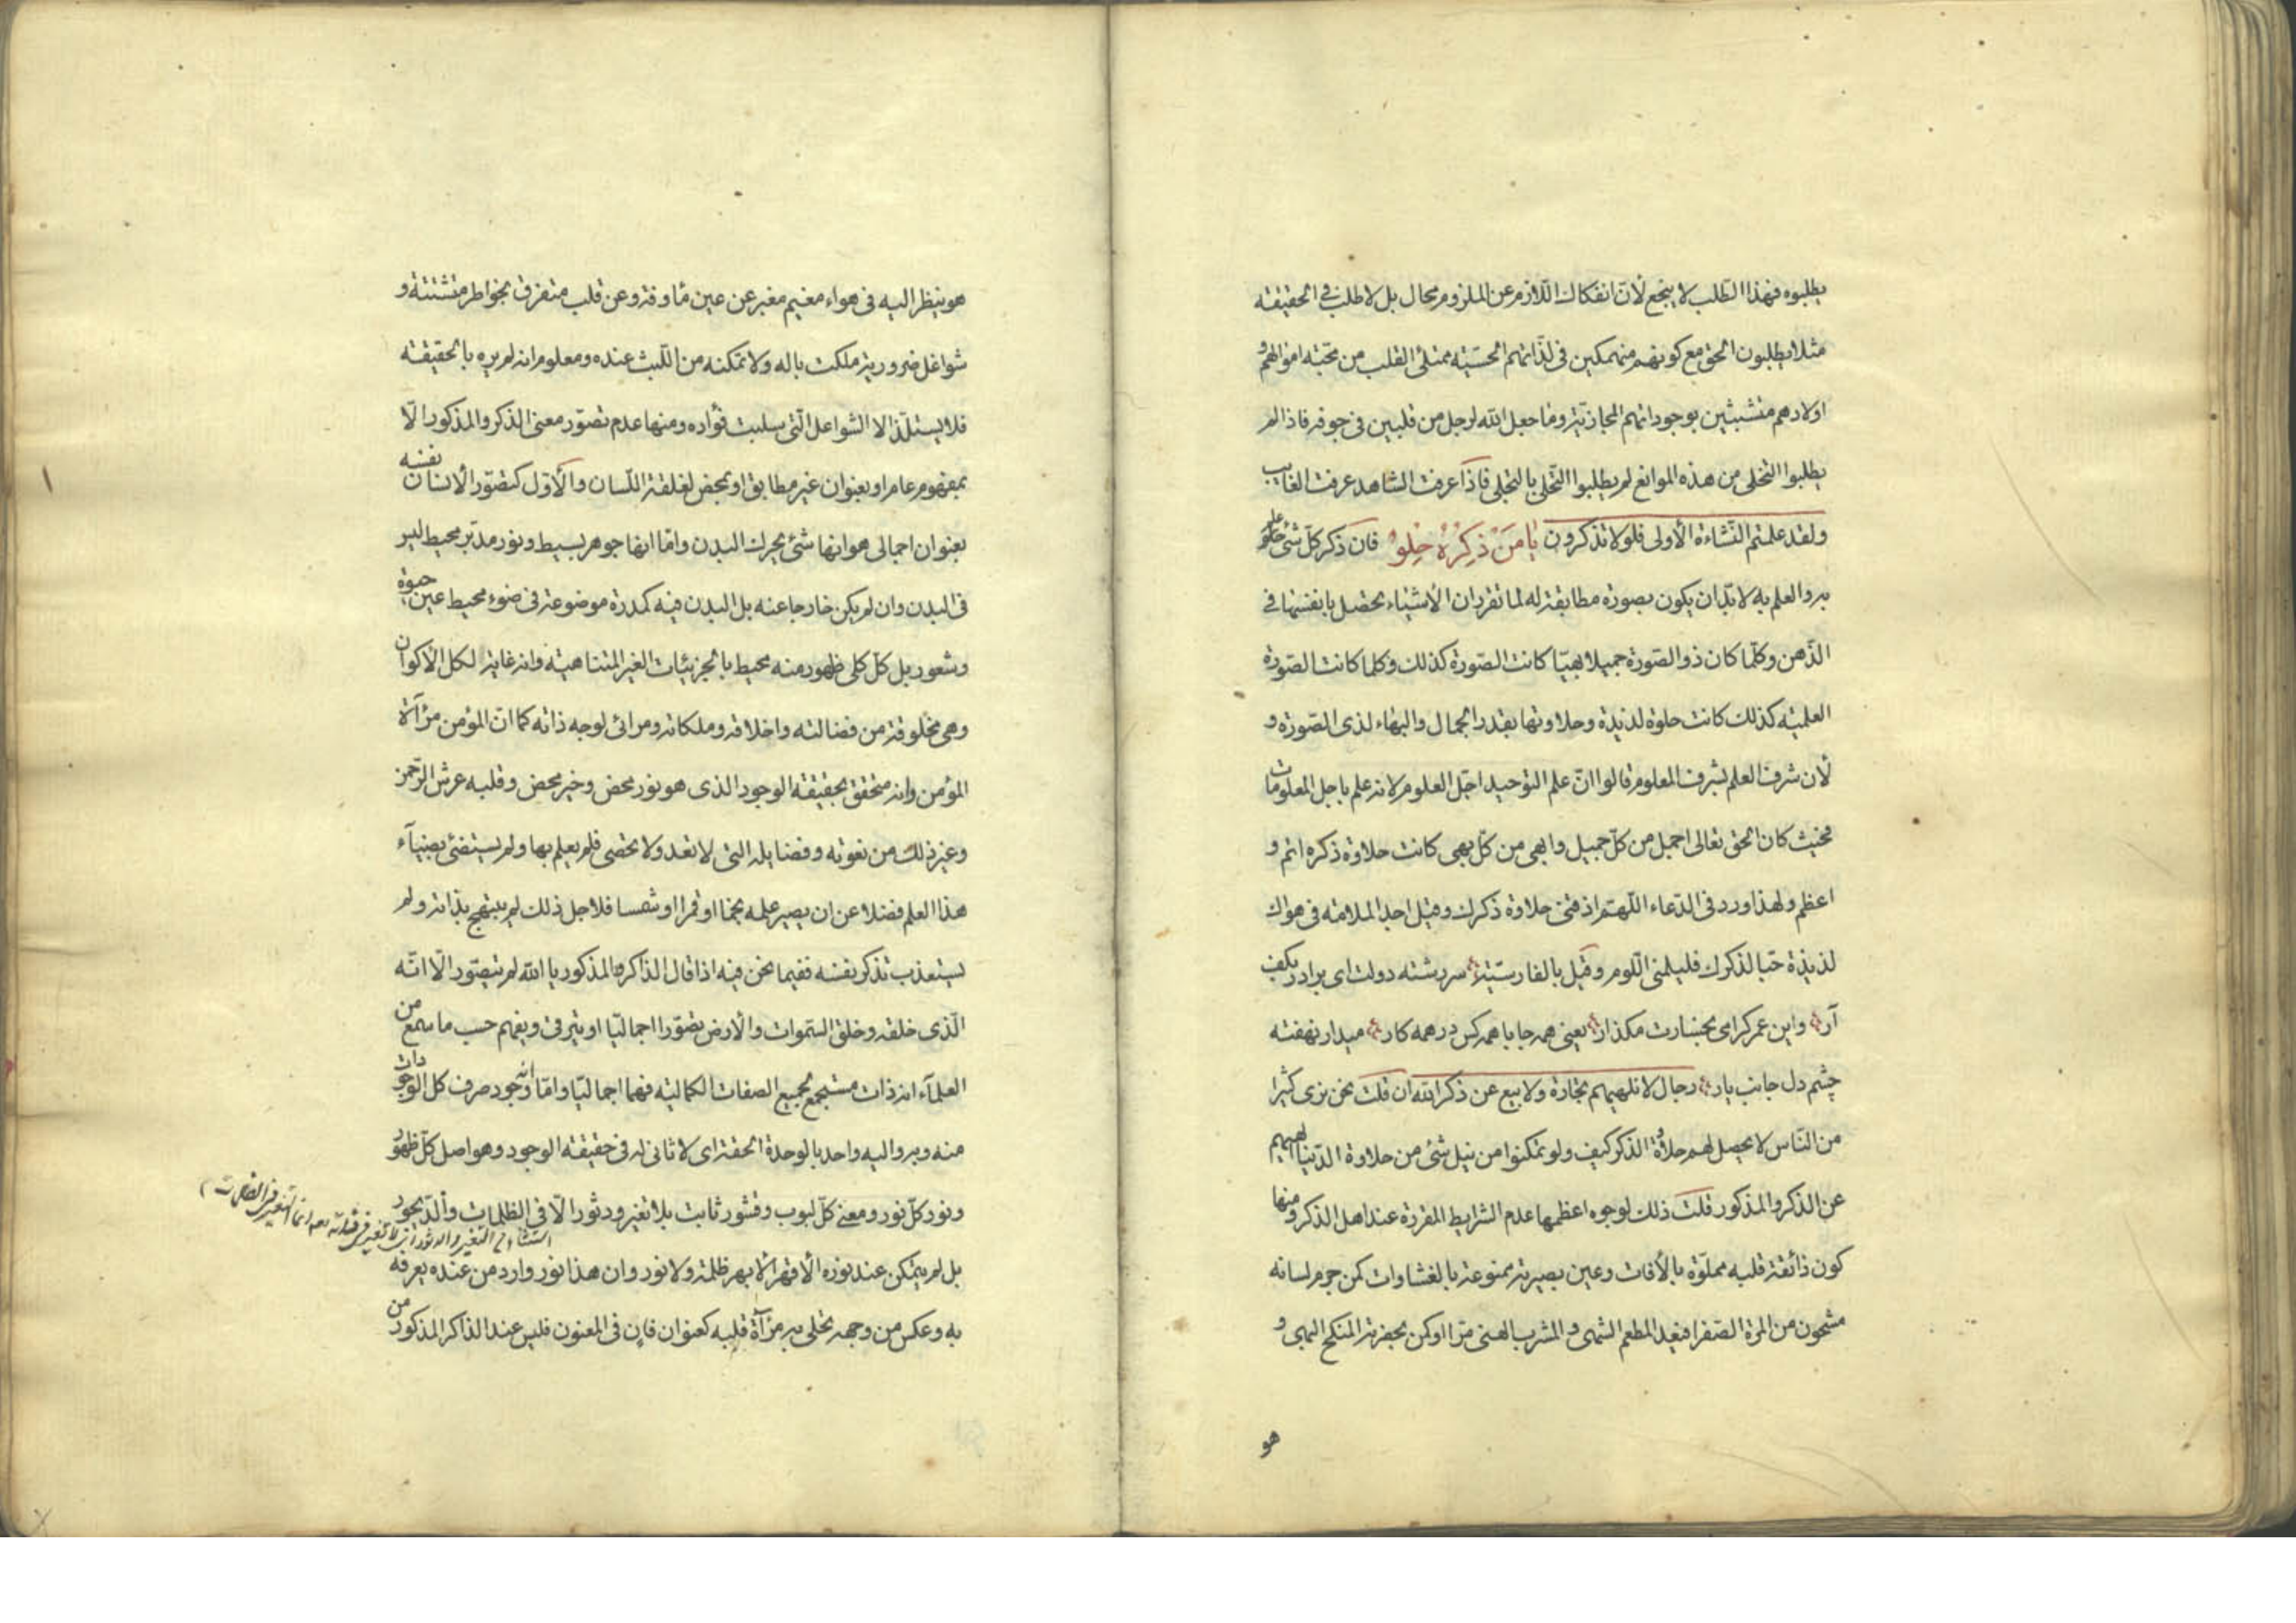 يطلبوه فهذا الطلب لا ينجع لأنّ انفكاك اللّازم عن الملزوم محال بل لا طلب فى الحقيقته
مثلا يطلبون الحق مع كونهم منهمكين فى لذّاتهم الحسّيّه ممتلئ القلب من محبّته اموالهم و
اولادهم متشبثين بوجوداتهم المجازيّة وما جعل الله لرجل من قلبين فى جوفه فاذا لم
يطلبوا التخلى من هذه الموانع لم يطلبوا التّحلى بالتجلى فاذا عرفت الشاهد عرفت الغايب
ولقد علمتم النّشاءة الأولى فلولا تذكرون يا مَنْ ذِكرُهُ حِلوٌ فان ذكر كلّ شئ علم
به والعلم به لا بدّ ان يكون بصورة مطابقة له لما تقرر ان الأشياء تحصل بانفسها فى
الذّهن وكلّما كان ذو الصّورة جميلا بهيّا كانت الصّورة كذلك وكلما كانت الصّورة
العلميّه كذلك كانت حلوة لذيذة وحلاوتها بقدر الجمال والبهاء لذى الصّورة و
لأن شرف العلم بشرف المعلوم قالوا انّ علم التوحيد اجلّ العلوم لانه علم باجل المعلومات
فحيث كان الحق تعالى اجمل من كلّ جميل وابهى من كلّ بهى كانت حلاوة ذكره اتم و
اعظم ولهذا ورد فى الدّعاء اللّهمّ اذقنى حلاوة ذكرك وقيل اجد الملامة فى هواك
لذيذة حبّا لذكرك فليلمنى اللّوم وقيل بالفارسيّة سررشته دولت اى برادر بكف
آر واين عمر كرامى بخسارت مكذار يعنى همه جا با همه كس در همه كار ميدار نهفته
چشم دل جانب يار رجال لا تلهيهم تجارة ولا بيع عن ذكر الله ان قلت نحن نرى كثيرا
من النّاس لا يحصل لهم حلاوة الذكر كيف ولو تمكنوا من نيل شئ من حلاوة الدّنيا لهيهم
عن الذكر والمذكور قلت ذلك لوجوه اعظمها عدم الشرايط المقررة عند اهل الذكر ومنها
كون ذائقة قلبه مملوّة بالأفات وعين بصيرته ممنوعة بالغشاوات كمن جرم لسانه
مشحون من المرّة الصّفرا فيجد المطعم الشهى والمشرب الهنى مرّا او كمن بحضرته المنكح البهى و
هو
هو ينظر اليه فى هواء مغيم مغبر عن عين مأوفة وعن قلب متفرق بخواطر متشتتة و
شواغل ضرورية ملكت باله ولا تمكنه من اللّبث عنده ومعلوم انه لم يره بالحقيقته
فلا يستلّذ الا الشواغل الّتى سلبت فؤاده ومنها عدم تصوّر معنى الذكر والمذكور الّا
بمفهوم عام او بعنوان غير مطابق او بمحض لقلقة اللّسان والأوّل كتصوّر الأنسان نفسه
بعنوان اجمالى هو انها شئ يحرك البدن وامّا انها جوهر بسيط ونور مدبّر محيط ليس
فى البدن وان لم يكن خارجا عنه بل البدن فيه كمدرة موضوعة فى ضوء محيط عين حيوة
وشعور بل كلّ كلى ظهور منه محيط بالجزئيات الغير المتناهيته وانه غاية لكل الأكوان
وهى مخلوقة من فضالته واخلاقه وملكاته ومرائى لوجه ذاته كما انّ المؤمن مرآة
المؤمن وانه متحقق بحقيقته الوجود الذى هو نور محض وخير محض وقلبه عرش الرّحمن
وغير ذلك من نعوته وفضايله التى لا تعد ولا تحصى فلم يعلم بها ولم يستضئ بضيآء
هذا العلم فضلا عن ان يصير علمه نجما او قمرا او شمسا فلاجل ذلك لم يبتهج بذاته ولم
يستعذب تذكر نفسه ففيما نحن فيه اذا قال الذاكر والمذكور يا الله لم يتصوّر الّا انّه
الّذى خلقه وخلق السّموات والأرض تصوّرا اجماليّا او يترقى ويفهم حسب ما سمع من
العلمآء انه ذات مستجمع لجميع الصفات الكماليّه فهما اجماليّا وامّا انه وجود صرف كل الوجودات
منه وبه واليه واحد بالوحدة الحقة اى لا ثانى له فى حقيقته الوجود وهو اصل كلّ ظهور
ونور كلّ نور ومعنى كلّ لبوب وقشور ثابت بلا تغير ودثور الّا فى الظلمات والدّيجور
بل لم يتمكن عند نوره الأقهر الأبهر ظلمة ولا نور وان هذا نور وارد من عنده يعرفه
به وعكس من وجهه تجلى به مرآة قلبه كعنوان فان فى المعنون فليس عند الذاكر المذكور من